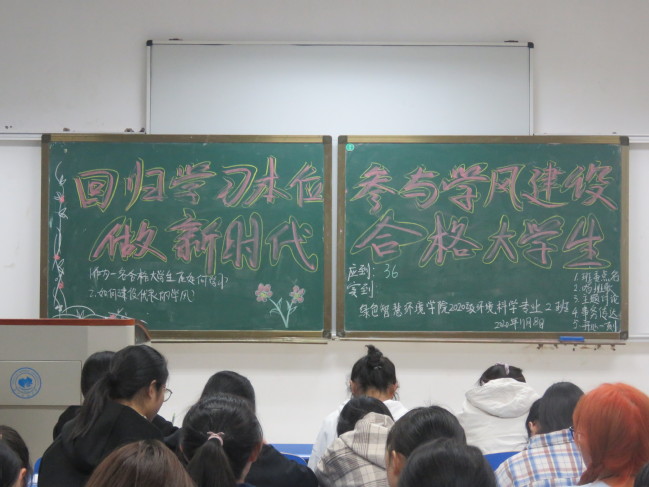 回归学习本位
做新时代
1.作为一名合格大学生应如何做
2.如何建设优良的学风
参与学风建设
合格大学生
应到：36
实到：
绿色智慧环境学院2020级环境科学专业2班
2020年11月8日
1.班委点名
2.唱班歌
3.主题讨论
4.事务传达
5.开心一刻